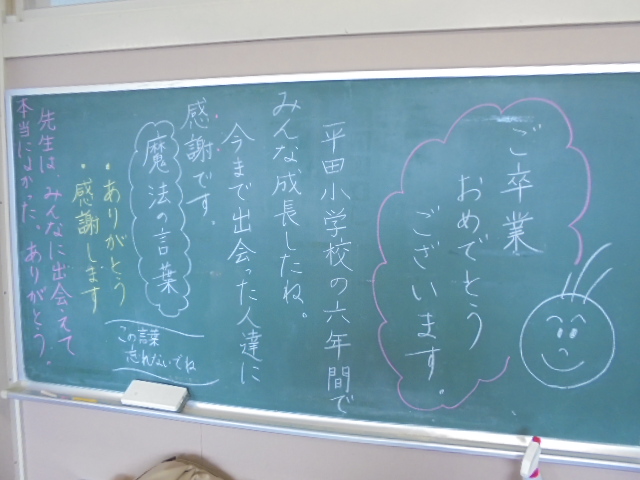 ご卒業
おめでとう
ございます。
平田小学校の六年間で
みんな成長したね。
今まで出会った人達に
感謝です。
魔法の言葉
・ありがとう
・感謝します
この言葉
忘れないでね
先生は、みんなに出会えて
本当によかった、ありがとう。